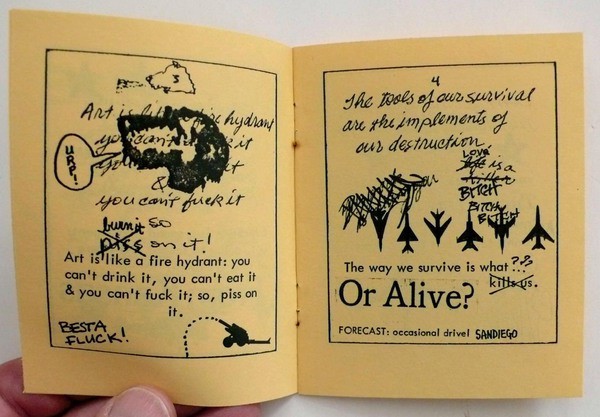 3
Art is like a fire hydrant
you can't
it
it
&
you can't fuck it
URP!
burn it so
piss on it!
Art is like a fire hydrant: you
can't drink it, you can't eat it
& you can't fuck it; so, piss on
it.
BESTA
FLUCK!
4
The tools of our survival
are the implements of
our destruction
LOVE
life is a
killer
BITCH
BITCH
BITCH
our
The way we survive is what ???
kills us.
Or Alive?
FORECAST: occasional drivel SANDIEGO